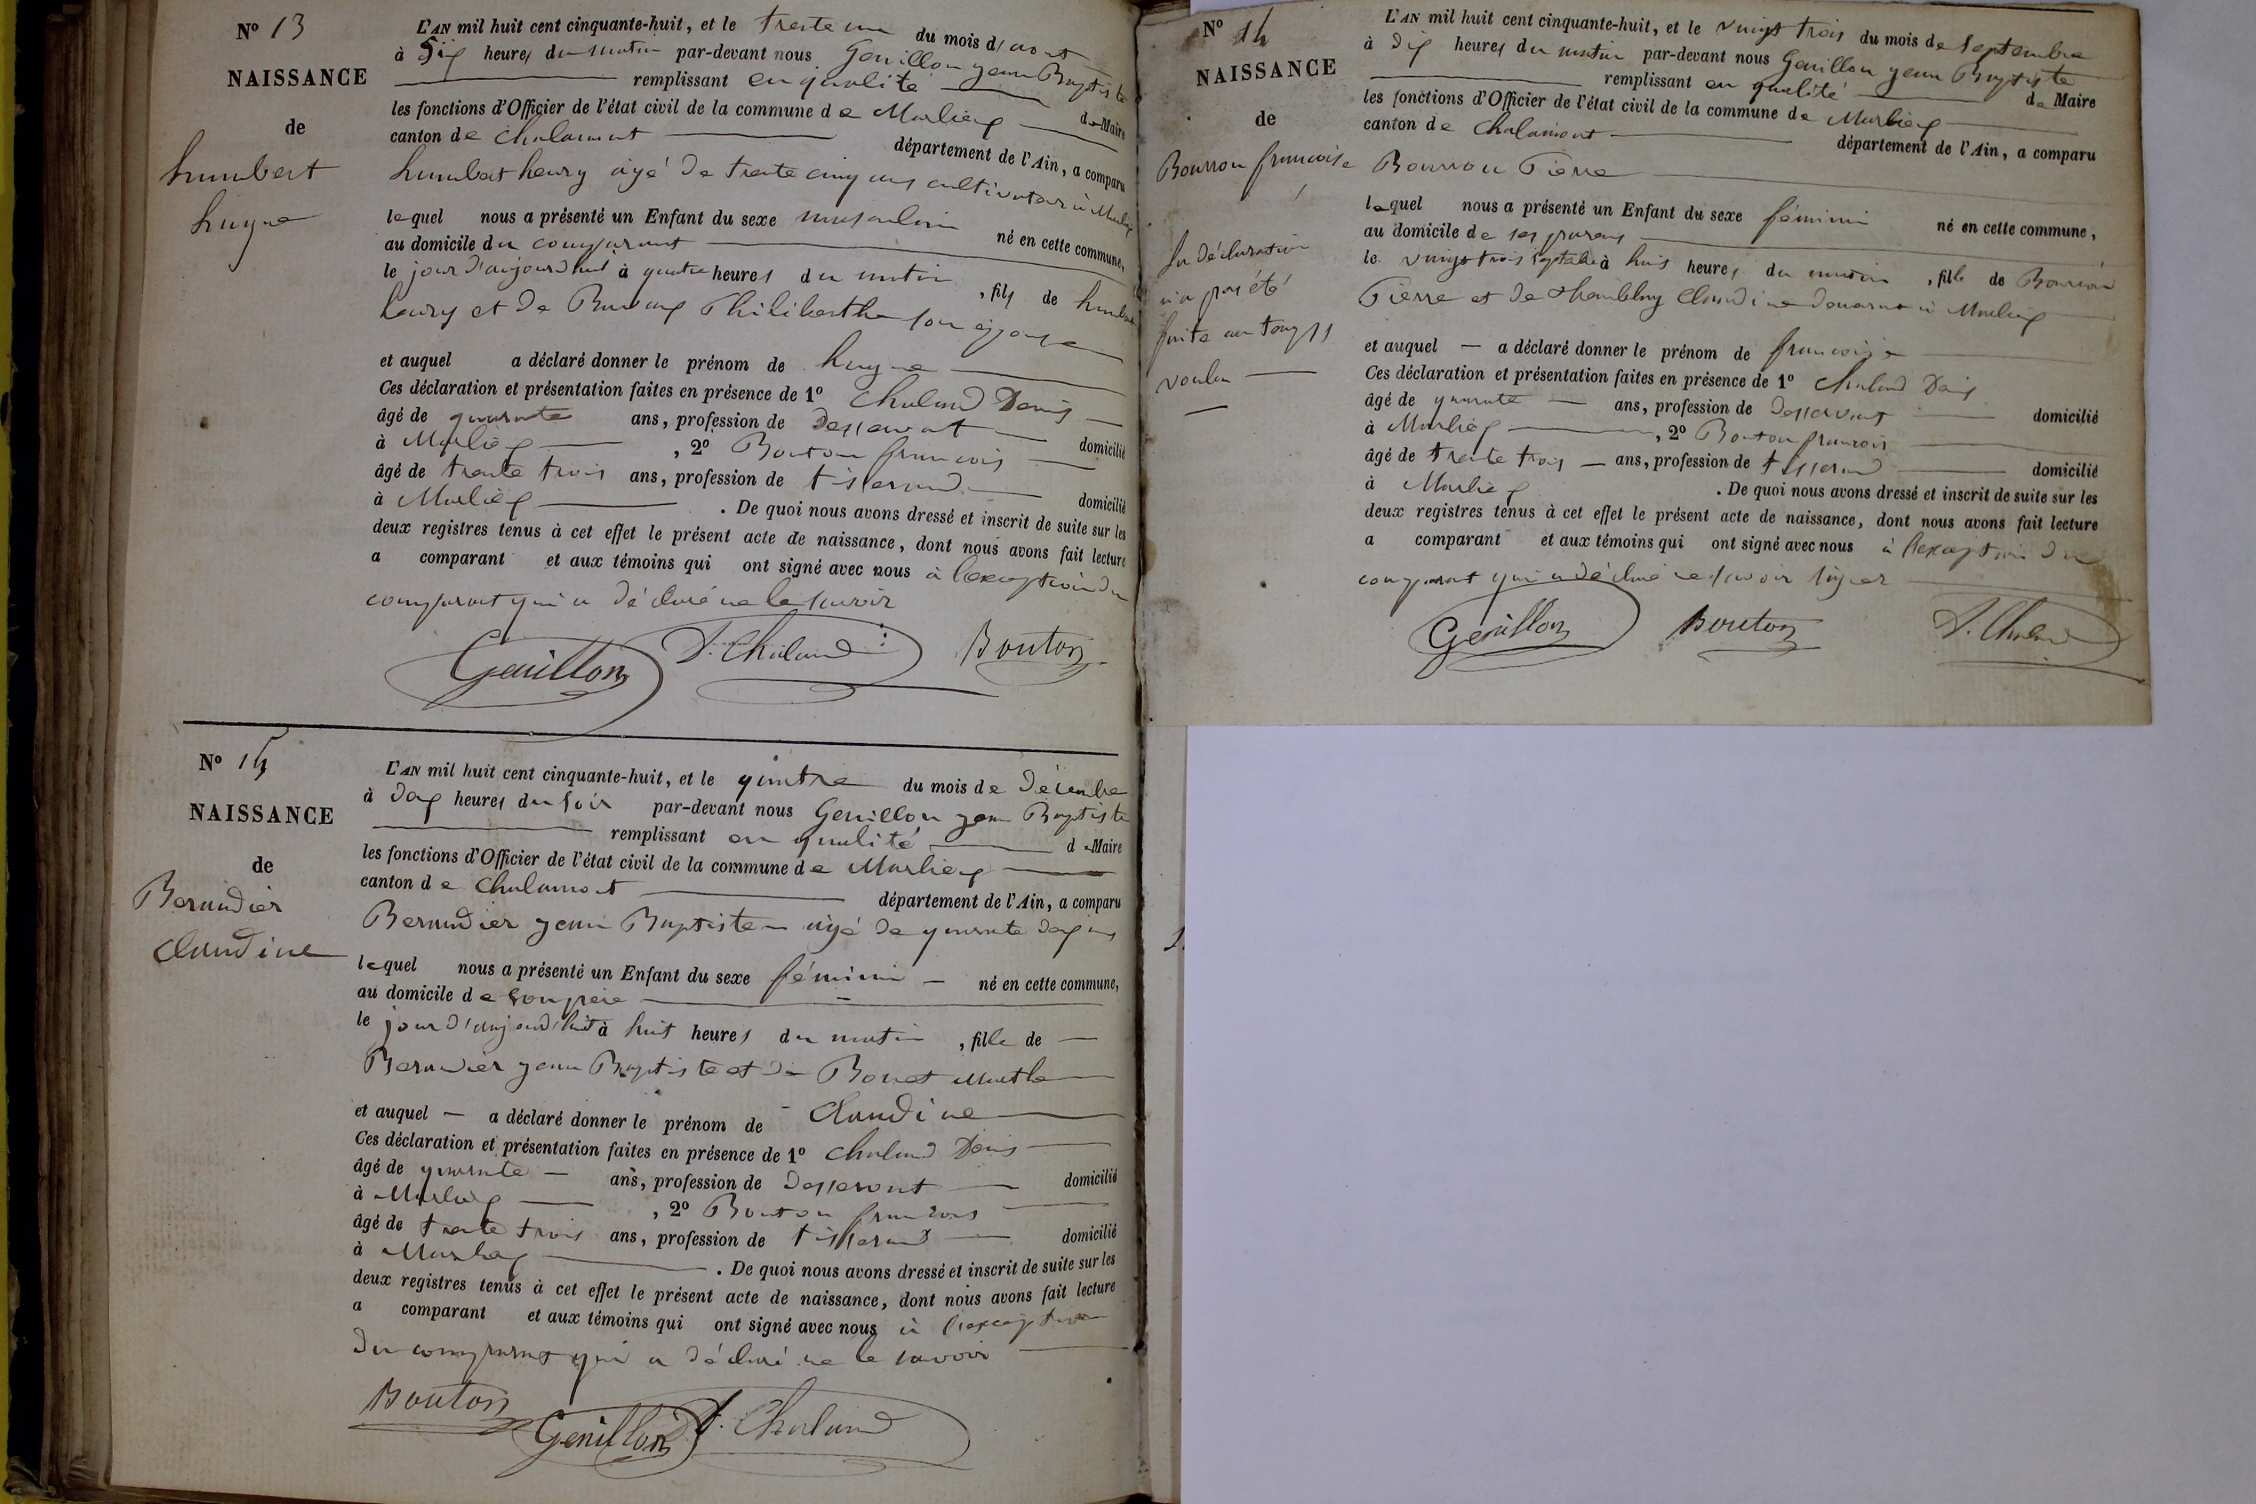 N° 13
NAISSANCE
de
humbert
huyne
L'AN mil huit cent cinquante-huit, et le trente un du mois d'aout
à Six heures du matin par-devant nous Genillon jean Baptiste
remplissant en qualité de Maire
les fonctions d'Officier de l'état civil de la commune de Marlieux
canton de Chalamont département de l'Ain, a comparu
humbert henry âgé de trente cinq ans cultivateur à Marlieux
lequel nous a présenté un Enfant du sexe masculin né en cette commune,
au domicile du comparant
le jour d'aujourd'hui à quatre heures du matin, fils de humbert
henry et de Philiberthe son épouse
et auquel a déclaré donner le prénom de huyne
Ces déclaration et présentation faites en présence de 1° Chaland Denis
âgé de quarante ans, profession de desservant domicilié
à Marlieux, 2° Bouton francois
âgé de trente trois ans, profession de tisserand domicilié
à Marlieux. De quoi nous avons dressé et inscrit de suite sur les
deux registres tenus à cet effet le présent acte de naissance, dont nous avons fait lecture
a comparant et aux témoins qui ont signé avec nous à l'exception du
comparant qui a déclaré ne le savoir
Genillon D. Chaland Bouton
N° 15
NAISSANCE
de
Beraudier
claudine
L'AN mil huit cent cinquante-huit, et le quatre du mois de décembre
à deux heures du soir par-devant nous Genillon jean Baptiste
remplissant en qualité de Maire
les fonctions d'Officier de l'état civil de la commune de Marlieux
canton de Chalamont département de l'Ain, a comparu
Beraudier jean Baptiste âgé de quarante deux ans
lequel nous a présenté un Enfant du sexe féminin né en cette commune,
au domicile de son père
le jour d'aujourd'huit à huit heures du matin, fille de
Beraudier jean Baptiste et de Bonet Marthe
et auquel a déclaré donner le prénom de Claudine
Ces déclaration et présentation faites en présence de 1° chaland Denis
âgé de quarante ans, profession de desservant domicilié
à Marlieux, 2° Bouton francois
âgé de trente trois ans, profession de tisserand domicilié
à Marlieux. De quoi nous avons dressé et inscrit de suite sur les
deux registres tenus à cet effet le présent acte de naissance, dont nous avons fait lecture
a comparant et aux témoins qui ont signé avec nous à l'exception
du comparant qui a déclaré ne le savoir
Bouton Genillon D. Chaland
N° 14
NAISSANCE
de
Bourron francoise
la déclaration
n'a pas été
faite au temps
voulu
L'AN mil huit cent cinquante-huit, et le vingt trois du mois de septembre
à dix heures du matin par-devant nous Genillon jean Baptiste
remplissant en qualité de Maire
les fonctions d'Officier de l'état civil de la commune de Marlieux
canton de Chalamont département de l'Ain, a comparu
Bourron Pierre
lequel nous a présenté un Enfant du sexe féminin né en cette commune,
au domicile de ses parens
le vingt trois septembre à huit heures du matin, fille de Bourron
Pierre et de Claudine à Marlieux
et auquel a déclaré donner le prénom de francoise
Ces déclaration et présentation faites en présence de 1° Chaland Denis
âgé de quarante ans, profession de desservant domicilié
à Marlieux, 2° Bouton francois
âgé de trente trois ans, profession de tisserand domicilié
à Marlieux. De quoi nous avons dressé et inscrit de suite sur les
deux registres tenus à cet effet le présent acte de naissance, dont nous avons fait lecture
a comparant et aux témoins qui ont signé avec nous à l'exception du
comparant qui a déclaré ne savoir signer
Genillon Bouton D. Chaland